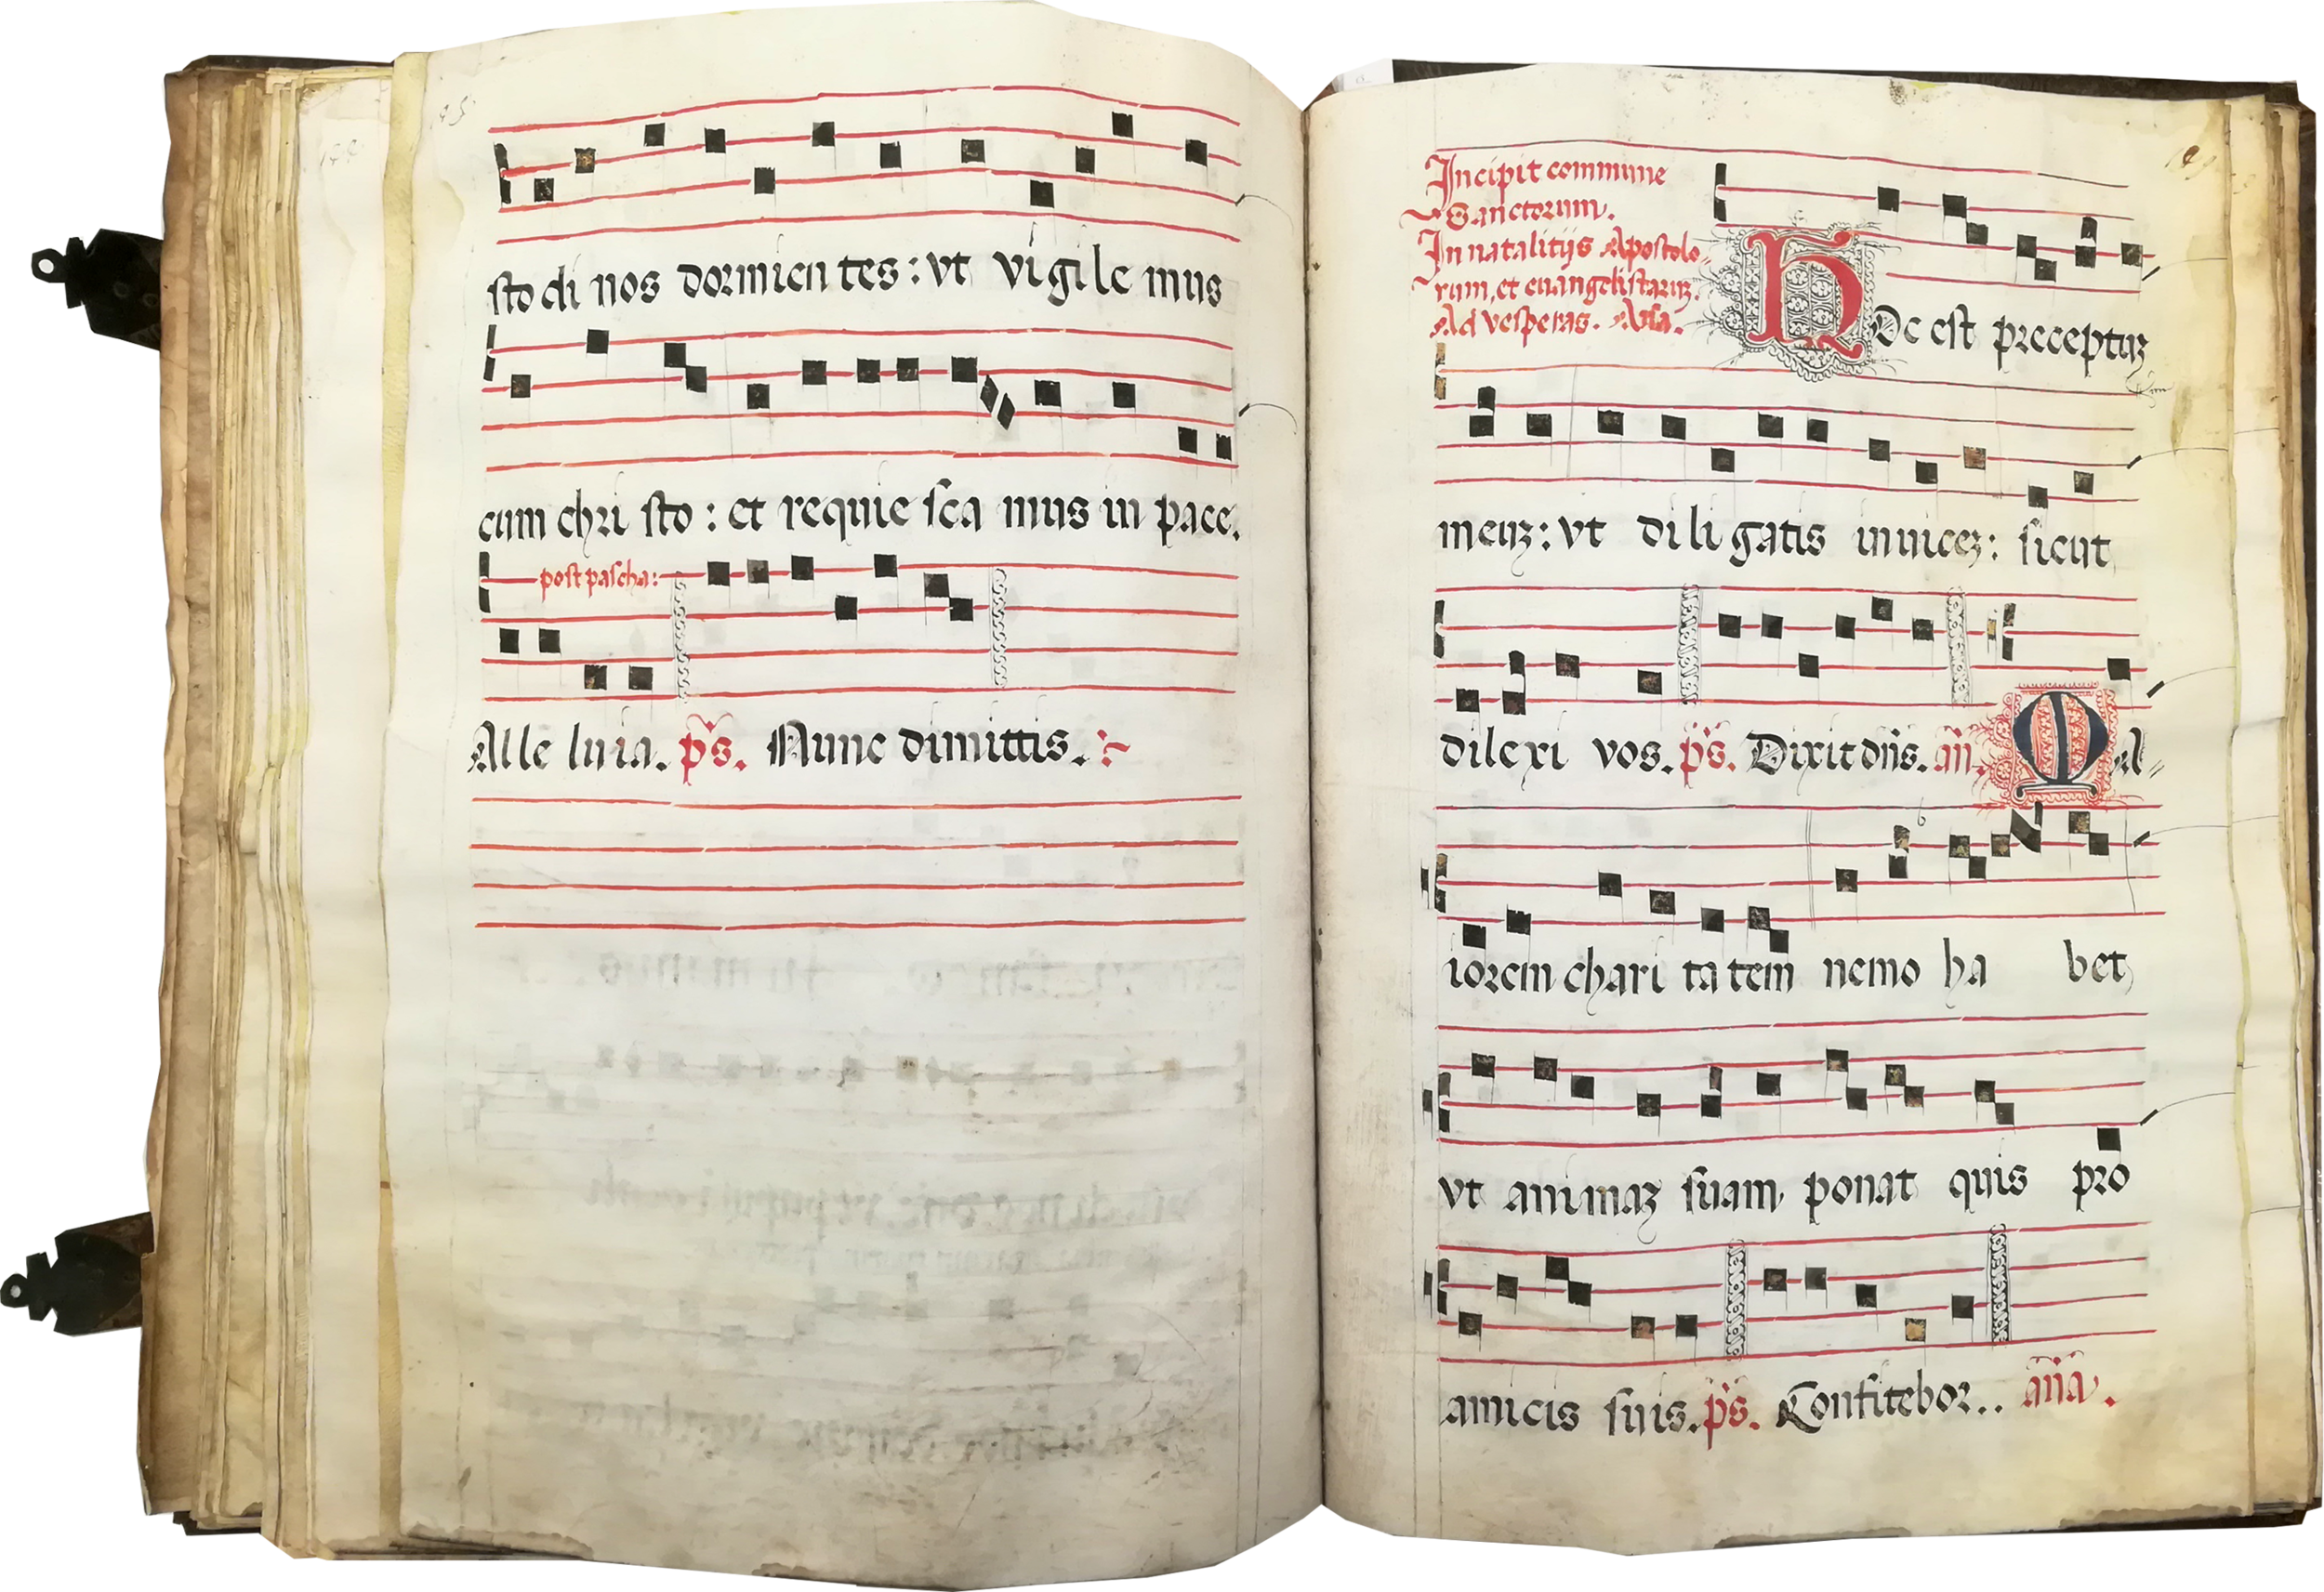 sto di nos dormien tes : vt vigile mus
cum chri sto : et requie sca mus in pace.
post pascha:
Alle luia. ps. Nunc dimittis.
Incipit commune
Sanctorum.
In natalitijs Apostolo-
rum, et euangelistarum.
Ad vesperas. Ana.
Hoc est preceptuʒ
meuʒ : vt di li gatis inuiceʒ : sicut
dile xi vos. ps. Dixit dns. an. Ma-
iorem chari ta tem nemo ha bet
vt animaʒ suam ponat quis pro
amicis suis. ps. Confitebor.. ana.